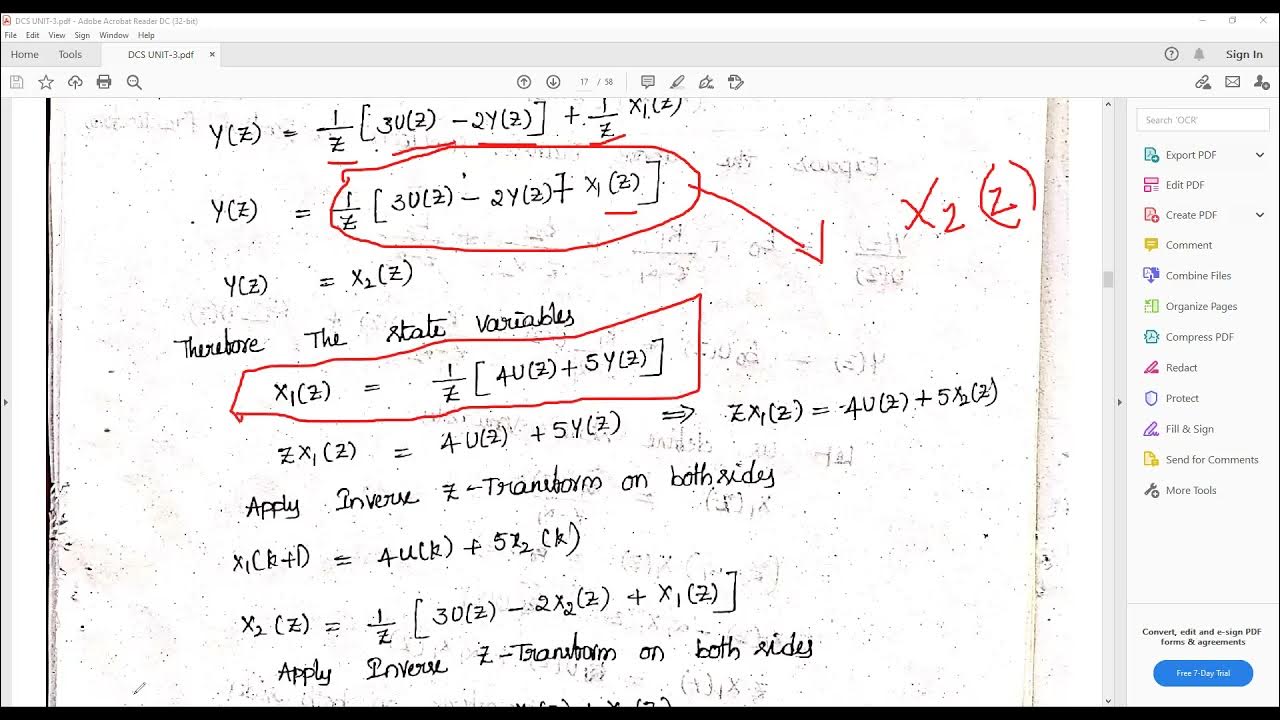 DCS UNIT-3.pdf - Adobe Acrobat Reader DC (32-bit)
File Edit View Sign Window Help
Home Tools DCS UNIT-3.pdf × Sign In
17 / 58
Y(z) = 1/z [3U(z) - 2Y(z)] + 1/z X₁(z)
Y(z) = 1/z [3U(z) - 2Y(z) + X₁(z)]
X₂(z)
Y(z) = X₂(z)
Therefore The state variables
X₁(z) = 1/z [4U(z) + 5Y(z)]
zX₁(z) = 4U(z) + 5Y(z) ⇒ zX₁(z) = 4U(z) + 5X₂(z)
Apply Inverse z-Transform on both sides
x₁(k+1) = 4U(k) + 5x₂(k)
X₂(z) = 1/z [3U(z) - 2X₂(z) + X₁(z)]
Apply Inverse z-Transform on both sides
Search 'OCR'
Export PDF
Edit PDF
Create PDF
Comment
Combine Files
Organize Pages
Compress PDF
Redact
Protect
Fill & Sign
Send for Comments
More Tools
Convert, edit and e-sign PDF
forms & agreements
Free 7-Day Trial